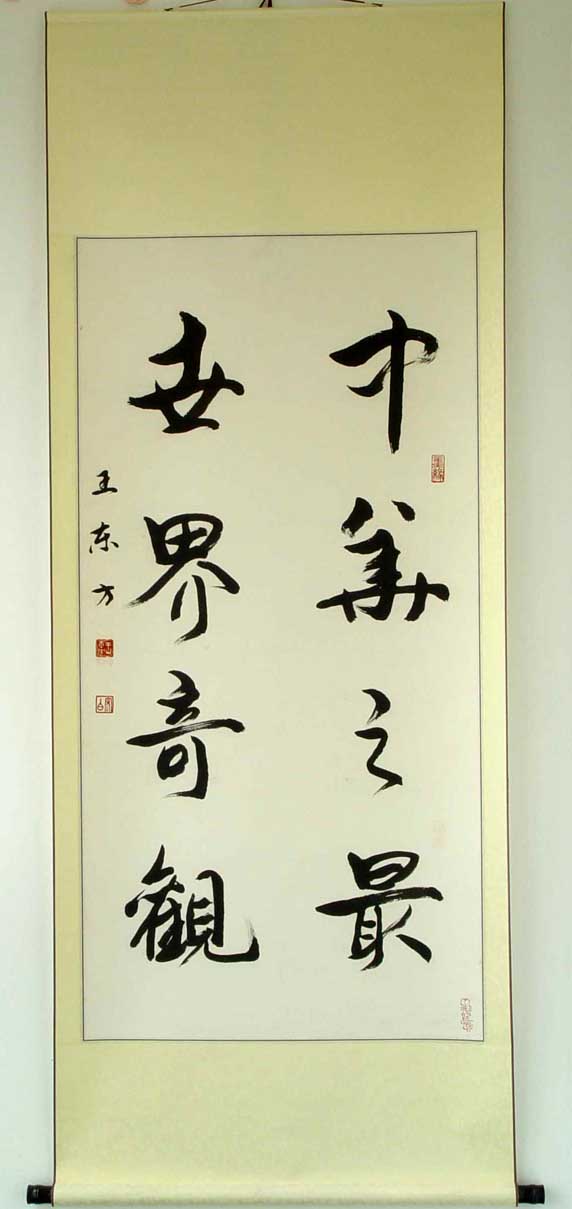 中華之最
世界奇觀
王东方